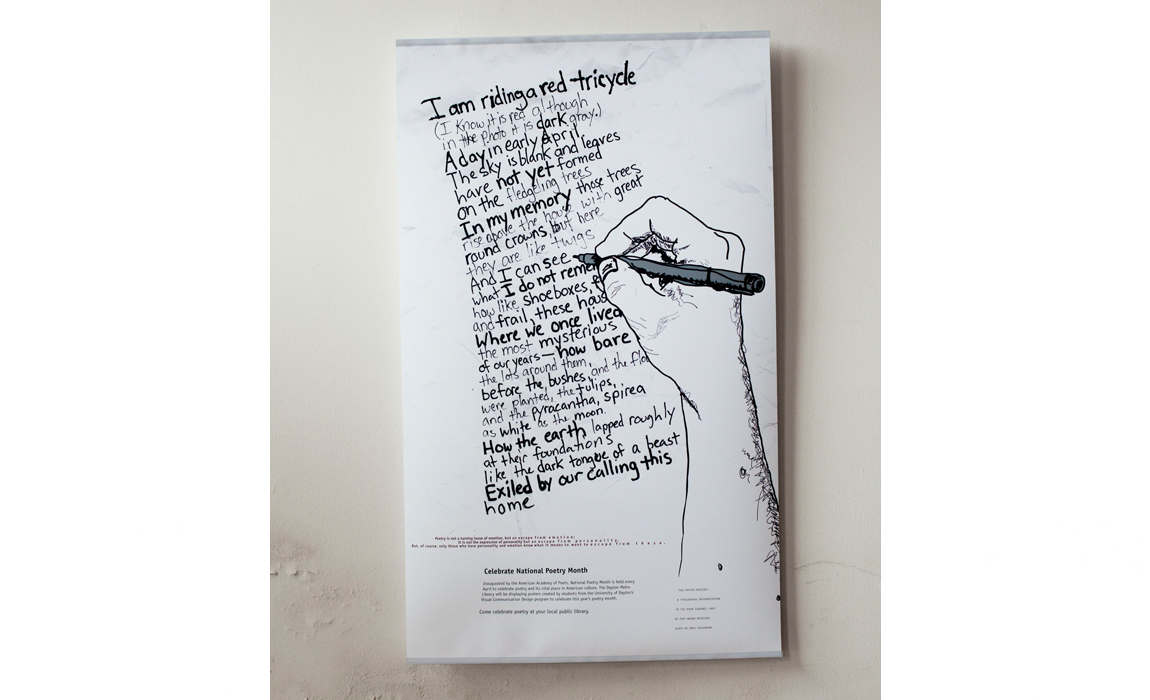 I am riding a red tricycle
(I know it is red although
in the photo it is dark gray.)
A day in early April.
The sky is blank and leaves
have not yet formed
on the fledgeling trees
In my memory those trees
rise above the house with great
round crowns, but here
they are like twigs
And I can see
what I do not remem
how like shoeboxes, f
and frail, these hous
Where we once lived
the most mysterious
of our years— how bare
the lots around them,
before the bushes, and the flo
were planted, the tulips,
and the pyracantha, spirea
as white as the moon.
How the earth lapped roughly
at their foundations
like the dark tongue of a beast
Exiled by our calling this
home
Poetry is not a turning loose of emotion, but an escape from emotion;
it is not the expression of personality but an escape from personality.
But, of course, only those who have personality and emotion know what it means to want to escape from these.
Celebrate National Poetry Month
Inaugurated by the American Academy of Poets, National Poetry Month is held every
April to celebrate poetry and its vital place in American culture. The Dayton Metro
Library will be displaying posters created by students from the University of Dayton's
Visual Communication Design program to celebrate this year's poetry month.
Come celebrate poetry at your local public library.